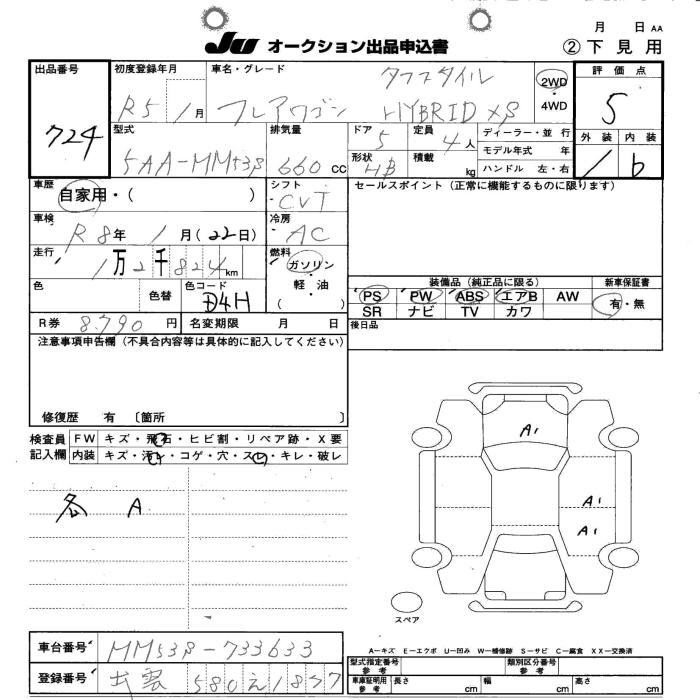 月 日 AA
JU オークション出品申込書 ②下見用
出品番号 初度登録年月 車名・グレード 評価点
724 R5 1月 フレアワゴン タフスタイル HYBRID XS 2WD 4WD 5
外装 内装
1 b
型式 排気量 ドア 定員 ディーラー・並行
5AA-MM53S 660cc 5 4人 モデル年式 年
形状 積載 ハンドル 左・右
HB kg
車歴 シフト セールスポイント (正常に機能するものに限ります)
自家用・( ) CVT
車検 冷房
R8年 1月(22日) AC
走行 燃料
1万2千824km ガソリン・軽・油 ( )
色 色替 色コード
D4H
装備品(純正品に限る) 新車保証書
PS PW ABS エアB AW 有・無
SR ナビ TV カワ
R券 8,790円 名変期限 月 日 後日品
注意事項申告欄 (不具合内容等は具体的に記入してください)
修復歴 有 〔箇所 〕
検査員 FW キズ・飛石・ヒビ割・リペア跡・X要
記入欄 内装 キズ・汚レ・コゲ・穴・スレ・キレ・破レ
各 A
A1
A1
A1
スペア
車台番号 MM53S-733633
A-キズ E-エクボ U-凹み W-補修跡 S-サビ C-腐食 XX-交換済
登録番号 出雲 580 え 1877
型式指定番号 参考 類別区分番号 参考
車庫証明用 参考 長さ cm 幅 cm 高さ cm